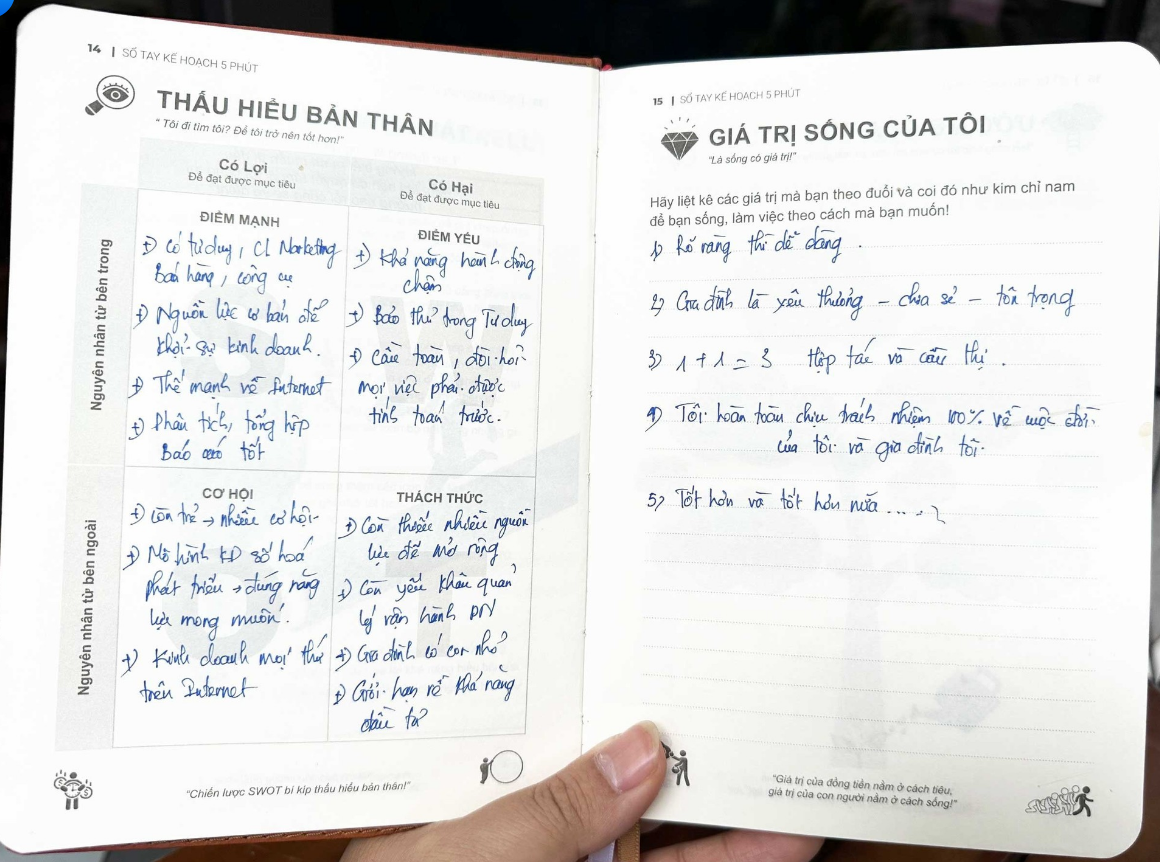 14 | SỔ TAY KẾ HOẠCH 5 PHÚT
THẤU HIỂU BẢN THÂN
" Tôi đi tìm tôi? Để tôi trở nên tốt hơn!"
Có Lợi
Để đạt được mục tiêu
Có Hại
Để đạt được mục tiêu
Nguyên nhân từ bên trong
ĐIỂM MẠNH
+) Có tư duy, CL Marketing
Bán hàng, công cụ
+) Nguồn lực cơ bản để
khởi sự kinh doanh.
+) Thế mạnh về Internet
+) Phân tích, tổng hợp
Báo cáo tốt
ĐIỂM YẾU
+) Khả năng hành động
chậm
+) Bảo thủ trong Tư duy
+) Cầu toàn, đòi hỏi
mọi việc phải được
tính toán trước.
Nguyên nhân từ bên ngoài
CƠ HỘI
+) Còn trẻ → nhiều cơ hội
+) Mô hình KD số hoá
phát triển → đúng năng
lực mong muốn.
+) Kinh doanh mọi thứ
trên Internet
THÁCH THỨC
+) Còn thiếu nhiều nguồn
lực để mở rộng
+) Còn yếu khâu quản
lý vận hành DN
+) Gia đình có con nhỏ
+) Giới hạn về khả năng
đầu tư
"Chiến lược SWOT bí kíp thấu hiểu bản thân!"
15 | SỔ TAY KẾ HOẠCH 5 PHÚT
GIÁ TRỊ SỐNG CỦA TÔI
"Là sống có giá trị!"
Hãy liệt kê các giá trị mà bạn theo đuổi và coi đó như kim chỉ nam
để bạn sống, làm việc theo cách mà bạn muốn!
1) Rõ ràng thì dễ dàng.
2) Gia đình là yêu thương - chia sẻ - tôn trọng
3) 1 + 1 = 3 Hợp tác và cầu thị.
4) Tôi hoàn toàn chịu trách nhiệm 100% về cuộc đời
của tôi và gia đình tôi.
5) Tốt hơn và tốt hơn nữa ....
"Giá trị của đồng tiền nằm ở cách tiêu,
giá trị của con người nằm ở cách sống!"